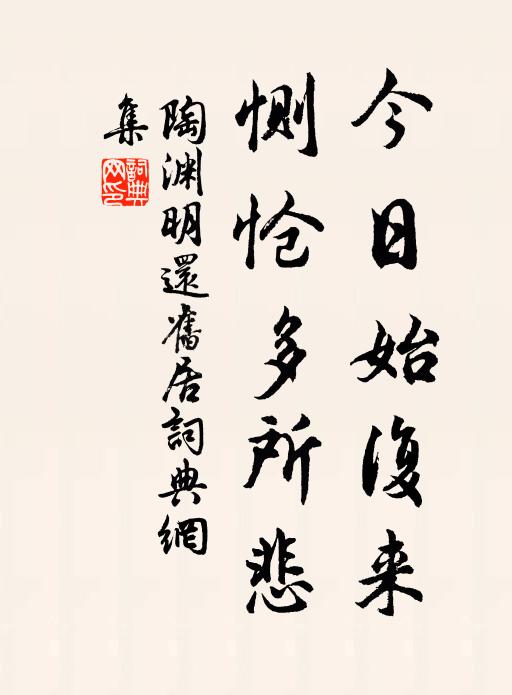 今日始復来
恻怆多所悲
陶渊明還舊居詞典網
集
詞典
网印